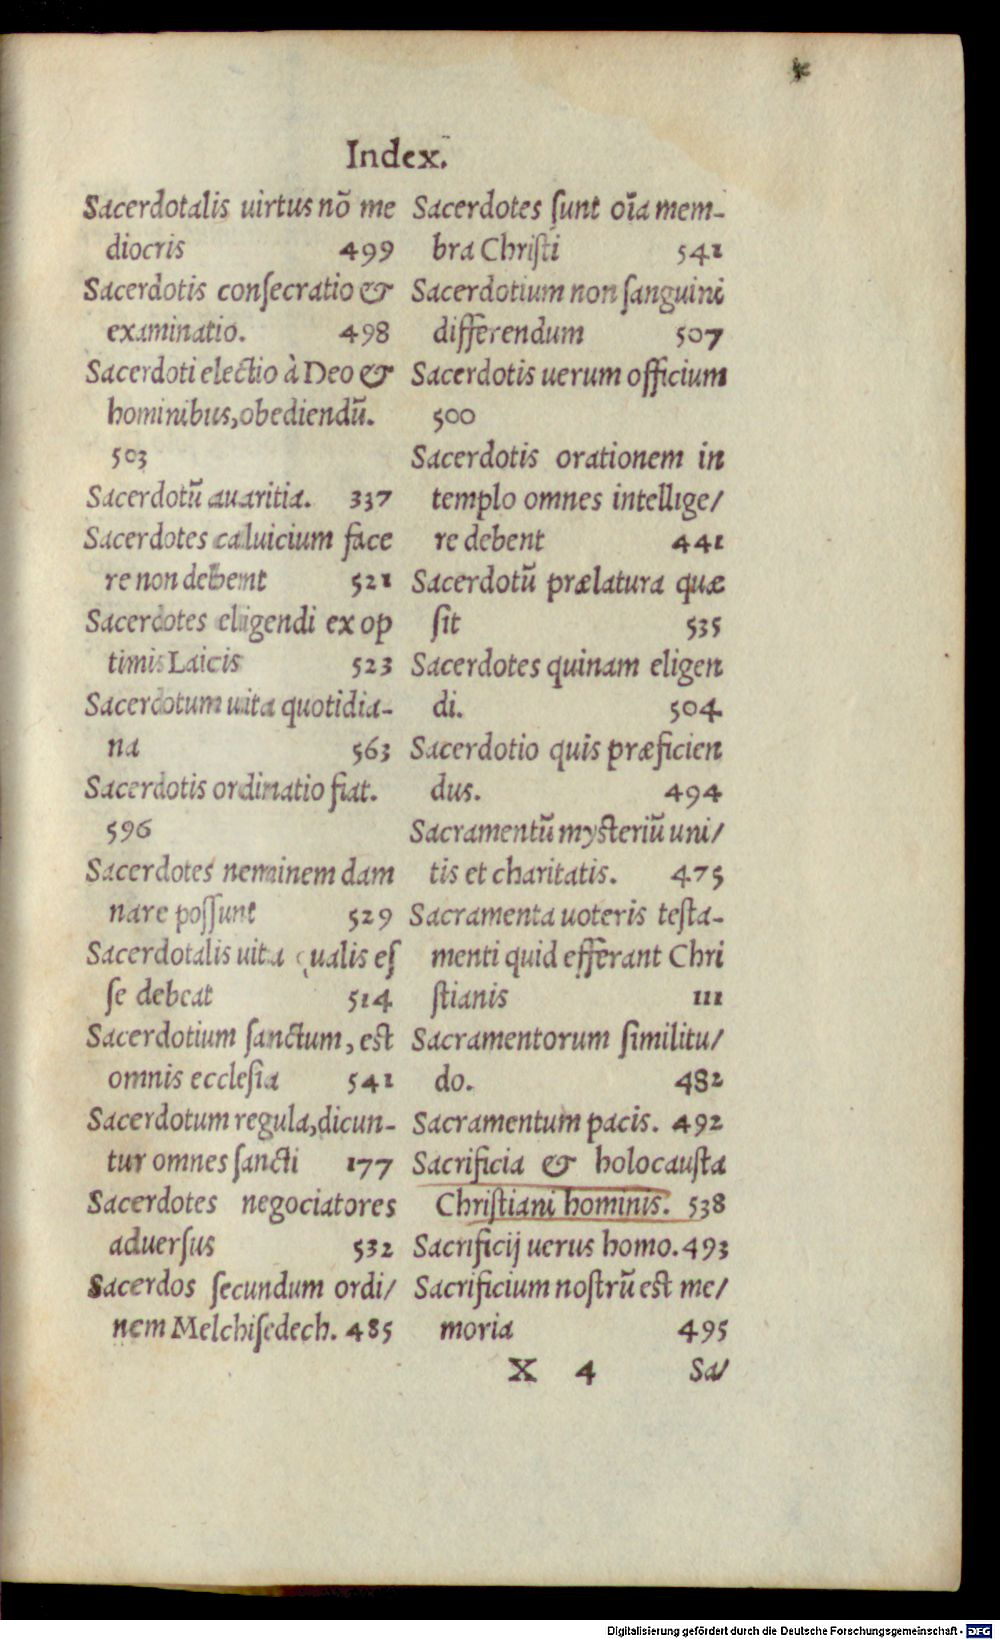 Index.
Sacerdotalis uirtus nõ me
diocris 499
Sacerdotis consecratio &
examinatio. 498
Sacerdoti electio à Deo &
hominibus, obediendũ.
503
Sacerdotũ auaritia. 337
Sacerdotes caluicium face
re non debent 521
Sacerdotes eligendi ex op
timis Laicis 523
Sacerdotum uita quotidia-
na 563
Sacerdotis ordinatio fiat.
596
Sacerdotes neminem dam
nare possunt 529
Sacerdotalis uita qualis es
se debeat 514
Sacerdotium sanctum, est
omnis ecclesia 541
Sacerdotum regula, dicun-
tur omnes sancti 177
Sacerdotes negociatores
aduersus 532
Sacerdos secundum ordi/
nem Melchisedech. 485
Sacerdotes sunt oĩa mem-
bra Christi 541
Sacerdotium non sanguini
differendum 507
Sacerdotis uerum officium
500
Sacerdotis orationem in
templo omnes intellige/
re debent 441
Sacerdotũ prælatura quæ
sit 535
Sacerdotes quinam eligen
di. 504
Sacerdotio quis præficien
dus. 494
Sacramentũ mysteriũ uni/
tis et charitatis. 475
Sacramenta uoteris testa-
menti quid efferant Chri
stianis 111
Sacramentorum similitu/
do. 482
Sacramentum pacis. 492
Sacrificia & holocausta
Christiani hominis. 538
Sacrificij uerus homo. 493
Sacrificium nostrũ est me/
moria 495
X 4 Sa/
Digitalisierung gefördert durch die Deutsche Forschungsgemeinschaft - DFG